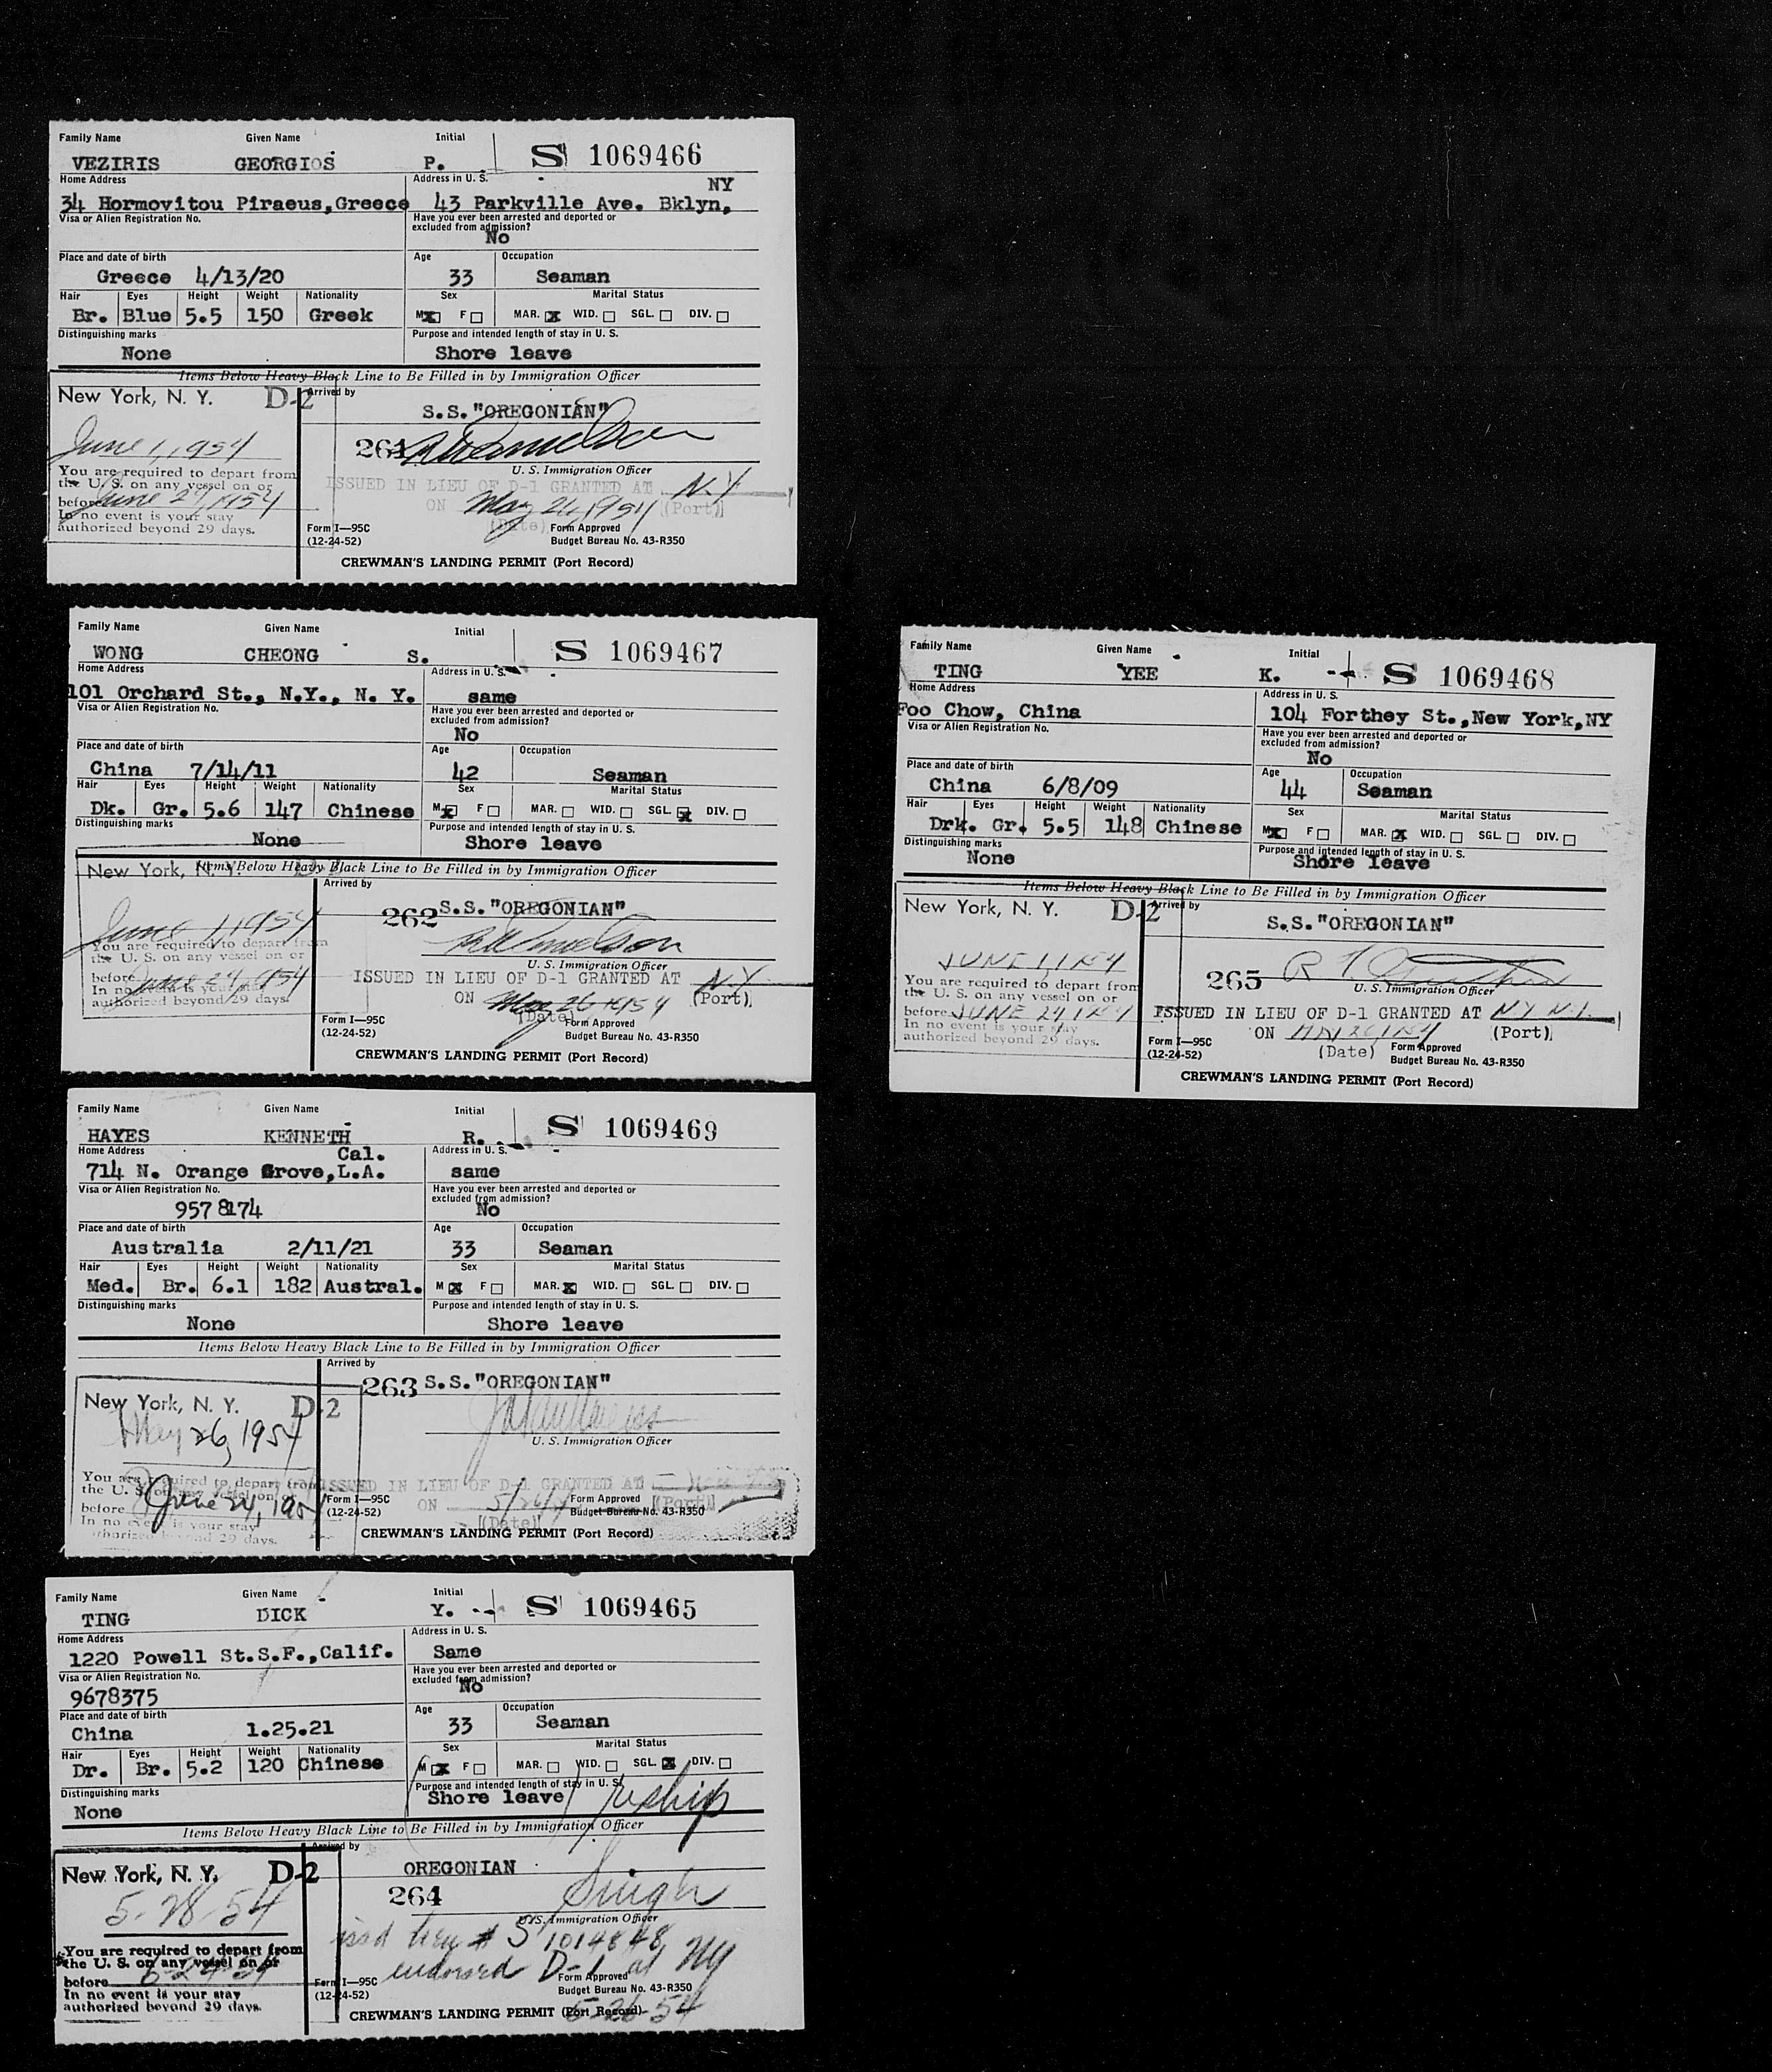 Family Name Given Name Initial
VEZIRIS GEORGIOS P. S 1069466
Home Address Address in U. S.
NY
34 Hormovitou Piraeus,Greece 43 Parkville Ave. Bklyn,
Visa or Alien Registration No. Have you ever been arrested and deported or
excluded from admission?
No
Place and date of birth Age Occupation
Greece 4/13/20 33 Seaman
Hair Eyes Height Weight Nationality Sex Marital Status
Br. Blue 5.5 150 Greek M X F MAR. X WID. SGL. DIV.
Distinguishing marks Purpose and intended length of stay in U. S.
None Shore leave
Items Below Heavy Black Line to Be Filled in by Immigration Officer
New York, N. Y. D-2 Arrived by
S.S."OREGONIAN"
June 1, 1954 261
You are required to depart from U. S. Immigration Officer
the U. S. on any vessel on or ISSUED IN LIEU OF D-1 GRANTED AT N.Y
before June 24, 1954 ON May 26, 1954 (Port)
In no event is your stay (Date)
authorized beyond 29 days. Form I—95C Form Approved
(12-24-52) Budget Bureau No. 43-R350
CREWMAN'S LANDING PERMIT (Port Record)
Family Name Given Name Initial
WONG CHEONG S. S 1069467
Home Address Address in U. S.
101 Orchard St., N.Y., N. Y. same
Visa or Alien Registration No. Have you ever been arrested and deported or
excluded from admission?
No
Place and date of birth Age Occupation
China 7/14/11 42 Seaman
Hair Eyes Height Weight Nationality Sex Marital Status
Dk. Gr. 5.6 147 Chinese M X F MAR. WID. SGL. X DIV.
Distinguishing marks Purpose and intended length of stay in U. S.
None Shore leave
Items Below Heavy Black Line to Be Filled in by Immigration Officer
New York, N. Y. Arrived by
262 S.S."OREGONIAN"
June 1, 1954
You are required to depart from U. S. Immigration Officer
the U. S. on any vessel on or
before June 24, 1954 ISSUED IN LIEU OF D-1 GRANTED AT N.Y
In no event is your stay ON May 26 1954 (Port)
authorized beyond 29 days. (Date)
Form I—95C Form Approved
(12-24-52) Budget Bureau No. 43-R350
CREWMAN'S LANDING PERMIT (Port Record)
Family Name Given Name Initial
TING YEE K. S 1069468
Home Address Address in U. S.
Foo Chow, China 104 Forthey St.,New York,NY
Visa or Alien Registration No. Have you ever been arrested and deported or
excluded from admission?
No
Place and date of birth Age Occupation
China 6/8/09 44 Seaman
Hair Eyes Height Weight Nationality Sex Marital Status
Drk. Gr. 5.5 148 Chinese M X F MAR. X WID. SGL. DIV.
Distinguishing marks Purpose and intended length of stay in U. S.
None Shore leave
Items Below Heavy Black Line to Be Filled in by Immigration Officer
New York, N. Y. D-2 Arrived by
S.S."OREGONIAN"
JUNE 1, 1954 265
You are required to depart from U. S. Immigration Officer
the U. S. on any vessel on or
before JUNE 24 1954 ISSUED IN LIEU OF D-1 GRANTED AT NY N.Y.
In no event is your stay ON MAY 26, 1954 (Port)
authorized beyond 29 days. (Date)
Form I—95C Form Approved
(12-24-52) Budget Bureau No. 43-R350
CREWMAN'S LANDING PERMIT (Port Record)
Family Name Given Name Initial
HAYES KENNETH R. S 1069469
Home Address Address in U. S.
Cal.
714 N. Orange Grove,L.A. same
Visa or Alien Registration No. Have you ever been arrested and deported or
excluded from admission?
9578174 No
Place and date of birth Age Occupation
Australia 2/11/21 33 Seaman
Hair Eyes Height Weight Nationality Sex Marital Status
Med. Br. 6.1 182 Austral. M X F MAR. X WID. SGL. DIV.
Distinguishing marks Purpose and intended length of stay in U. S.
None Shore leave
Items Below Heavy Black Line to Be Filled in by Immigration Officer
Arrived by
263 S.S."OREGONIAN"
New York, N. Y. D-2
May 26, 1954 U. S. Immigration Officer
You are required to depart from ISSUED IN LIEU OF D-1 GRANTED AT
the U. S. on any vessel on or
before June 24, 1954 ON 5/26/54 (Port)
In no event is your stay (Date)
authorized beyond 29 days.
Form I—95C Form Approved
(12-24-52) Budget Bureau No. 43-R350
CREWMAN'S LANDING PERMIT (Port Record)
Family Name Given Name Initial
TING DICK Y. S 1069465
Home Address Address in U. S.
1220 Powell St.S.F.,Calif. Same
Visa or Alien Registration No. Have you ever been arrested and deported or
excluded from admission?
9678375 No
Place and date of birth Age Occupation
China 1.25.21 33 Seaman
Hair Eyes Height Weight Nationality Sex Marital Status
Dr. Br. 5.2 120 Chinese M X F MAR. WID. SGL. X DIV.
Distinguishing marks Purpose and intended length of stay in U. S.
None Shore leave / reship
Items Below Heavy Black Line to Be Filled in by Immigration Officer
Arrived by
New York, N. Y. D-2 OREGONIAN
5-28-54 264 Singh
U. S. Immigration Officer
issd lieu # S 1014848
You are required to depart from endorsed D-1 at NY
the U. S. on any vessel on or
before 6-24-54
In no event is your stay
authorized beyond 29 days.
Form I—95C Form Approved
(12-24-52) Budget Bureau No. 43-R350
CREWMAN'S LANDING PERMIT (Port Record)
5-26-54